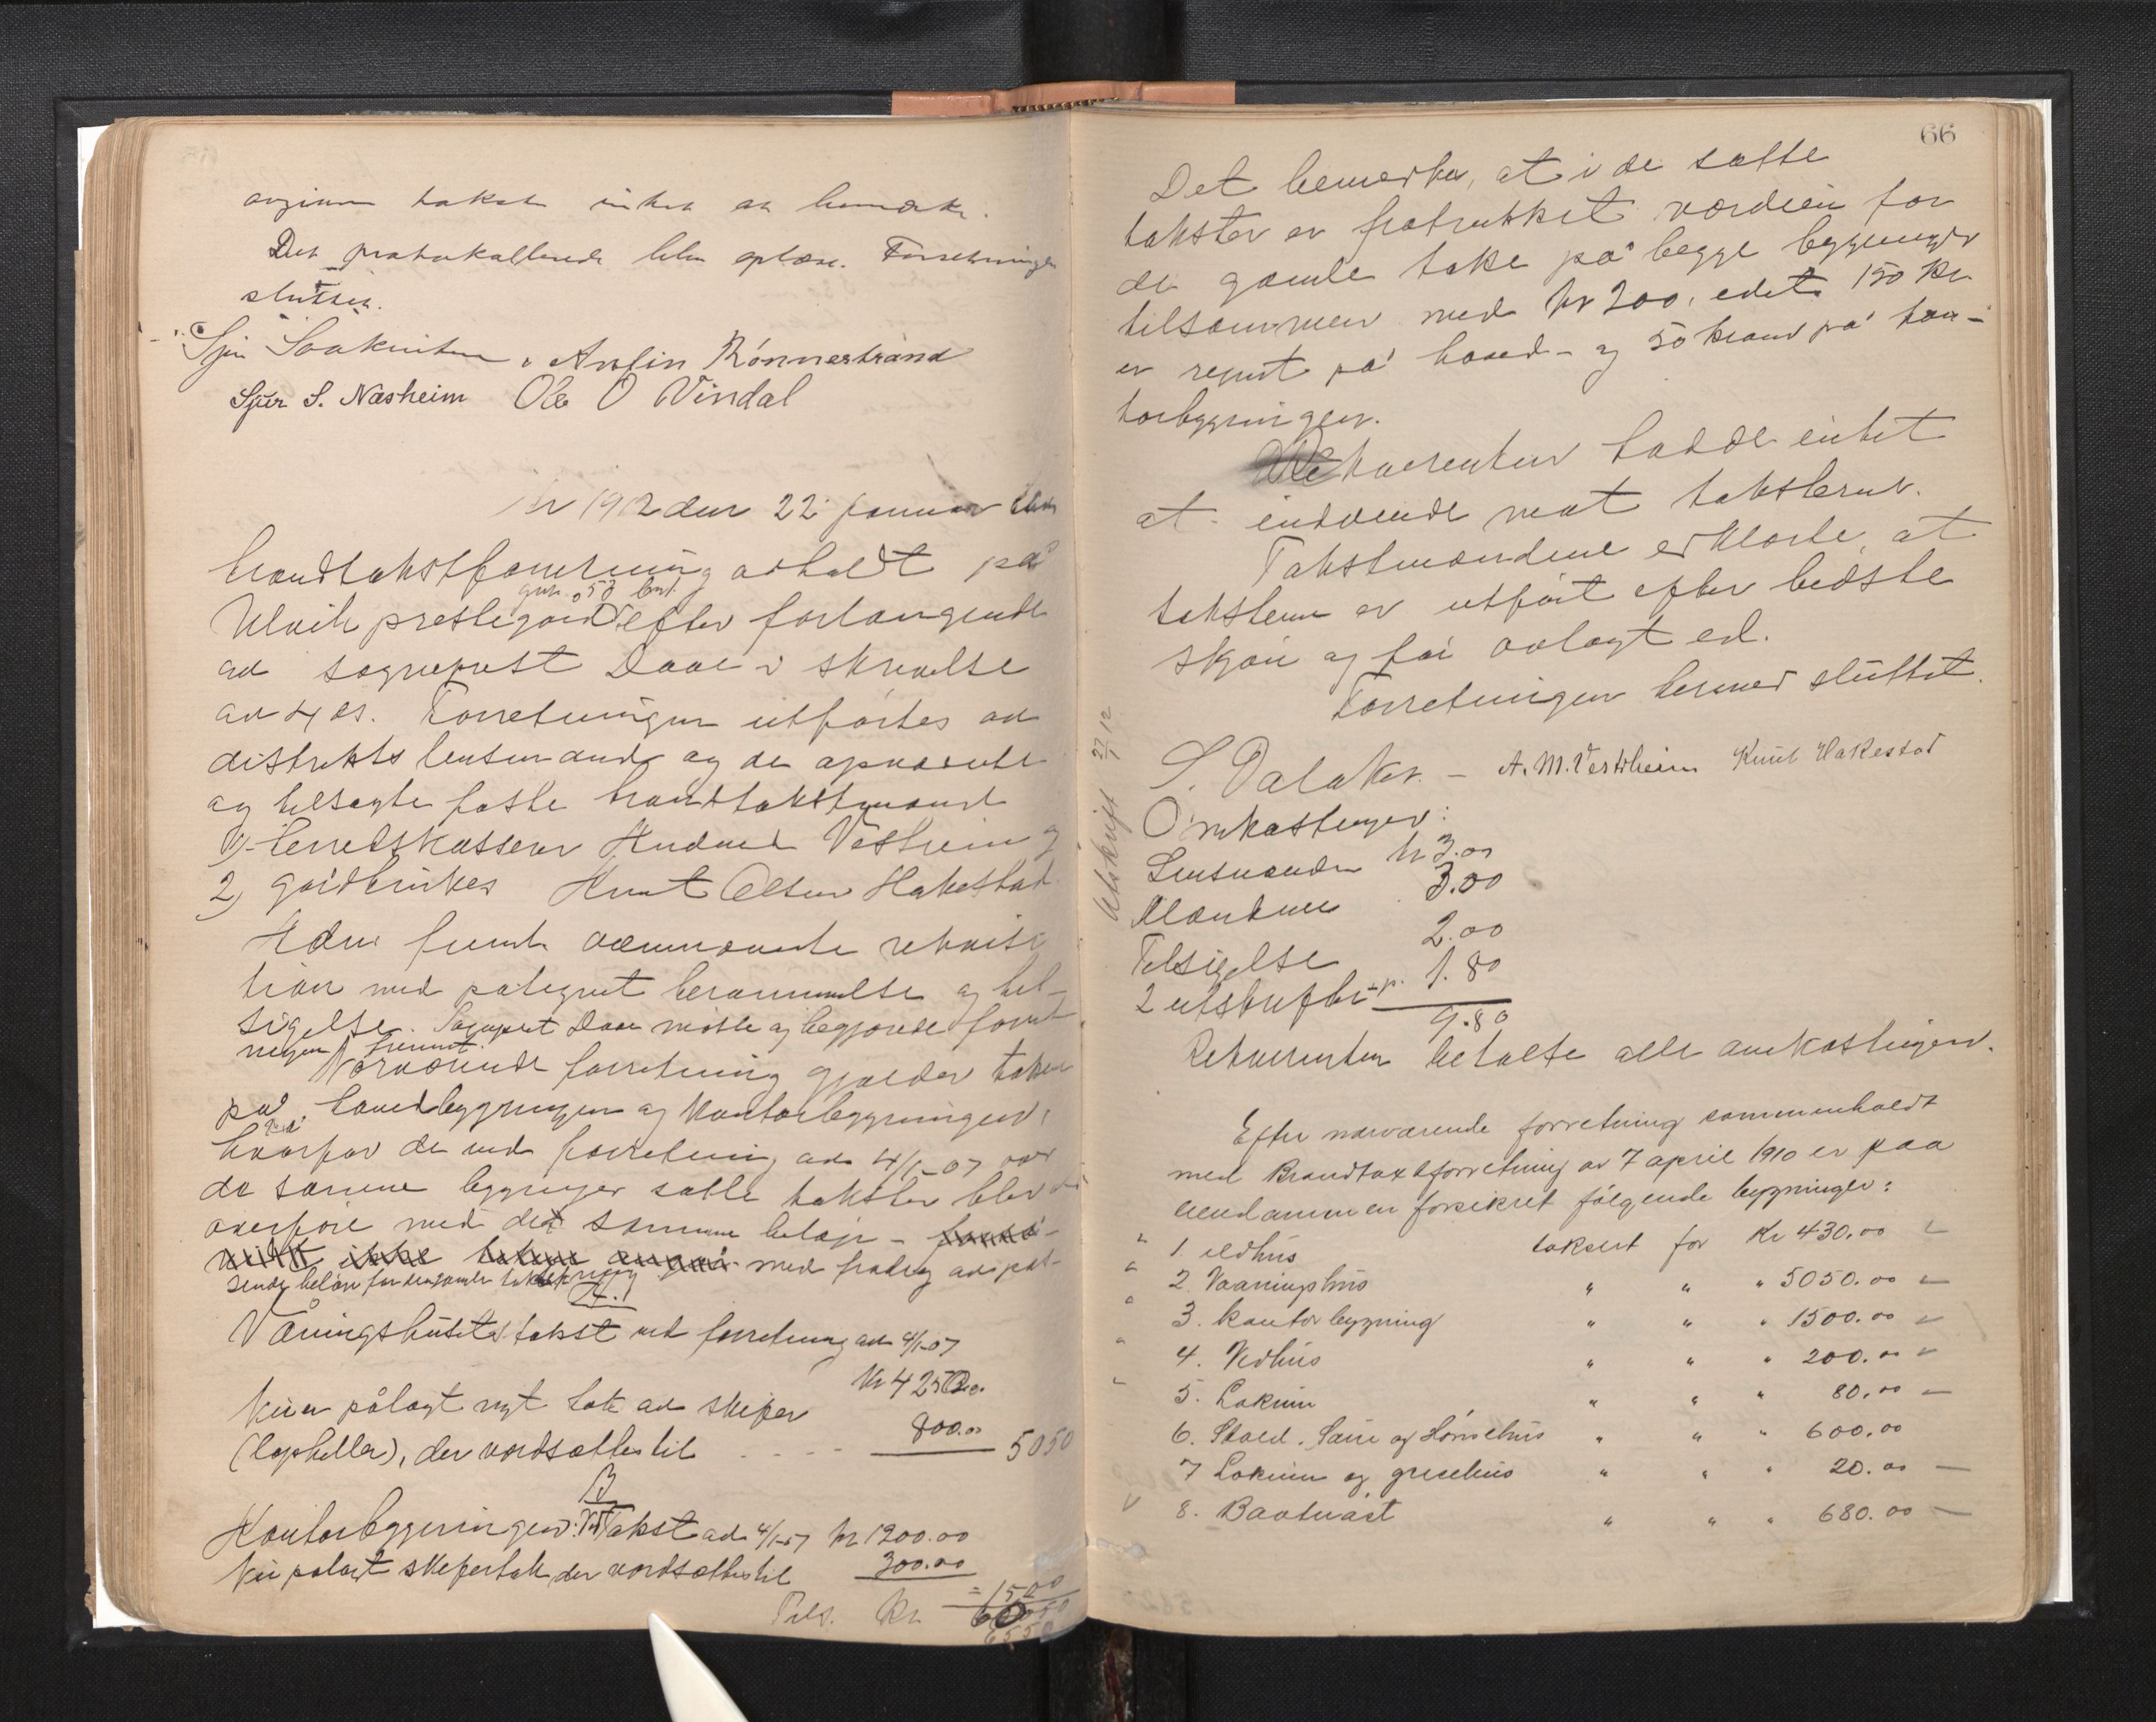 angives takst intet at bemærke.
Det protokollerede blev oplæst. Forretningen
sluttet.
Sjur Anfin Rönnestrand
Sjur S. Næsheim Ole O Vindal
År 1912 den 22 januar blev
brandtakstforretning avholdt på
gnr. 53 bnr.
Ulvik prestegård efter forlangende
av sogneprest Daae i skrivelse
av 4 ds. Forretningen utførtes av
distrikts lensmand og de opnævnte
og tilsagte faste brandtakstmænd
1) herredskasserer Amund Vestrheim og
2) gårdbruker Knut Olsen Hakestad
Adm. fremla ovennævnte rekvisi-
tion med påtegnet berammelse og til-
sigelse. Sogneprest Daae møtte og begjærede forret-
ningen fremmet.
Nærværende forretning gjælder taken
på hovedbygningen og Kontorbygningen,
hvorfor de ved forretning av 4/1-07 over
de samme bygninger satte takster blev
overføre med det samme beløp -
med fradrag av pas-
sende beløp for den gamle taktækning
A.
Våningshusets takst ved forretning av 4/1-07
Kr 4250.00
Nu er pålagt nyt tak av skifer
(lapheller), der værdsættes til 800.00 5050
B
Kontorbygningen: Takst av 4/1-07 kr 1200.00
Nu pålagt skifertak der værdsættes til 300.00
= 1500
Tils. Kr. 6550
66
Det bemerkes, at i de satte
takster er fratrukket værdien for
de gamle take på begge bygninger
tilsammen med kr 200, idet 150 kr
er regnet på hoved- og 50 kroner på kon-
torbygningen.
Rekvirenten hadde intet
at indvende mot taksterne.
Takstmændene erklærte, at
taksten er utført efter bedste
skjøn og før avlagt ed.
Forretningen hermed sluttet.
S. Dalaker. - A. M. Vestrheim Knut Hakestad
Utskrift 27/1 12
Omkostninger:
Lensmanden kr 3.00
Mændene 3.00
Tilsigelse 2.00
2 utskrifter 1.80
9.80
Rekvirenten betalte alle omkostninger.
Efter nærværende forretning sammenholdt
med Brandtaxtforretning av 7 april 1910 er paa
eiendommen forsikret følgende bygninger:
1. ildhus taksert for Kr 430.00
2 Vaaningshus " " " 5050.00
3. Kontorbygning " " " 1500.00
4. Vedhus " " " 200.00
5. Lokum " " " 80.00
6. Stald, Saue og Hønsehus " " " 600.00
7 Lokum og grisehus " " " 20.00
8. Baatnaust " " " 680.00